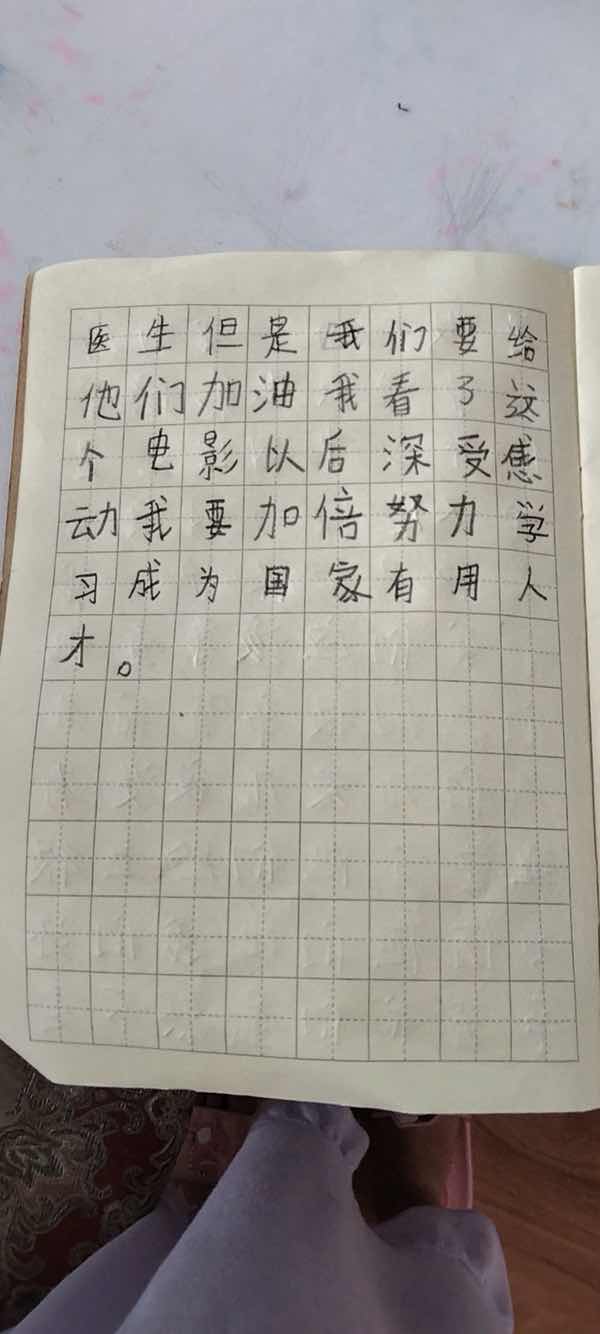 医生但是我们要给
他们加油我看了这
个电影以后深受感
动我要加倍努力学
习成为国家有用人
才。